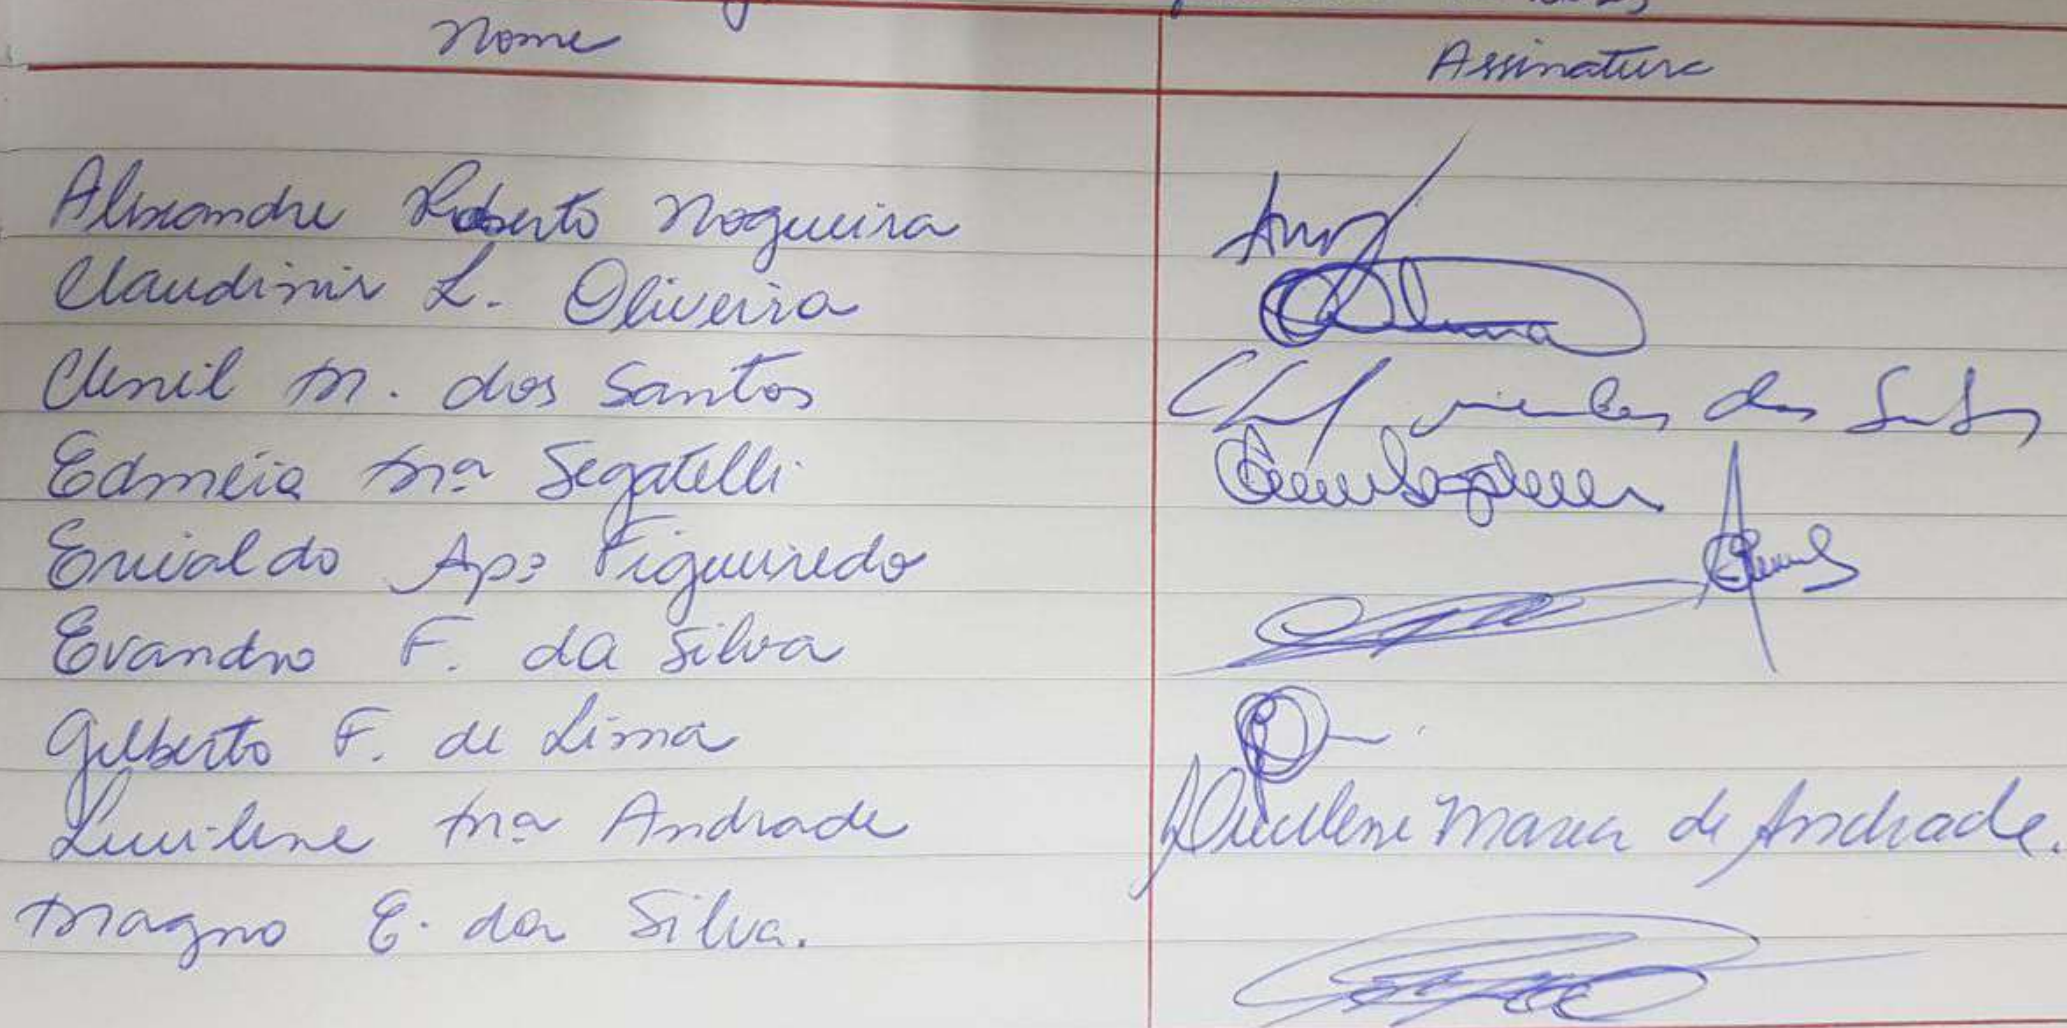 Nome Assinatura
Alexandre Roberto Nogueira
Claudinir L. Oliveira
Clenil M. dos Santos dos Santos
Edméia Mª Segatelli
Enivaldo Apº Figueiredo
Evandro F. da Silva
Gilberto F. de Lima
Lucilene Mª Andrade Lucilene Maria de Andrade.
Magno E. da Silva.